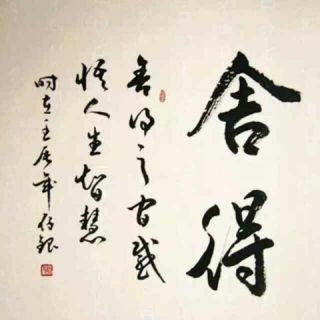 舍得
舍得之间感
悟人生智慧
时在壬辰年